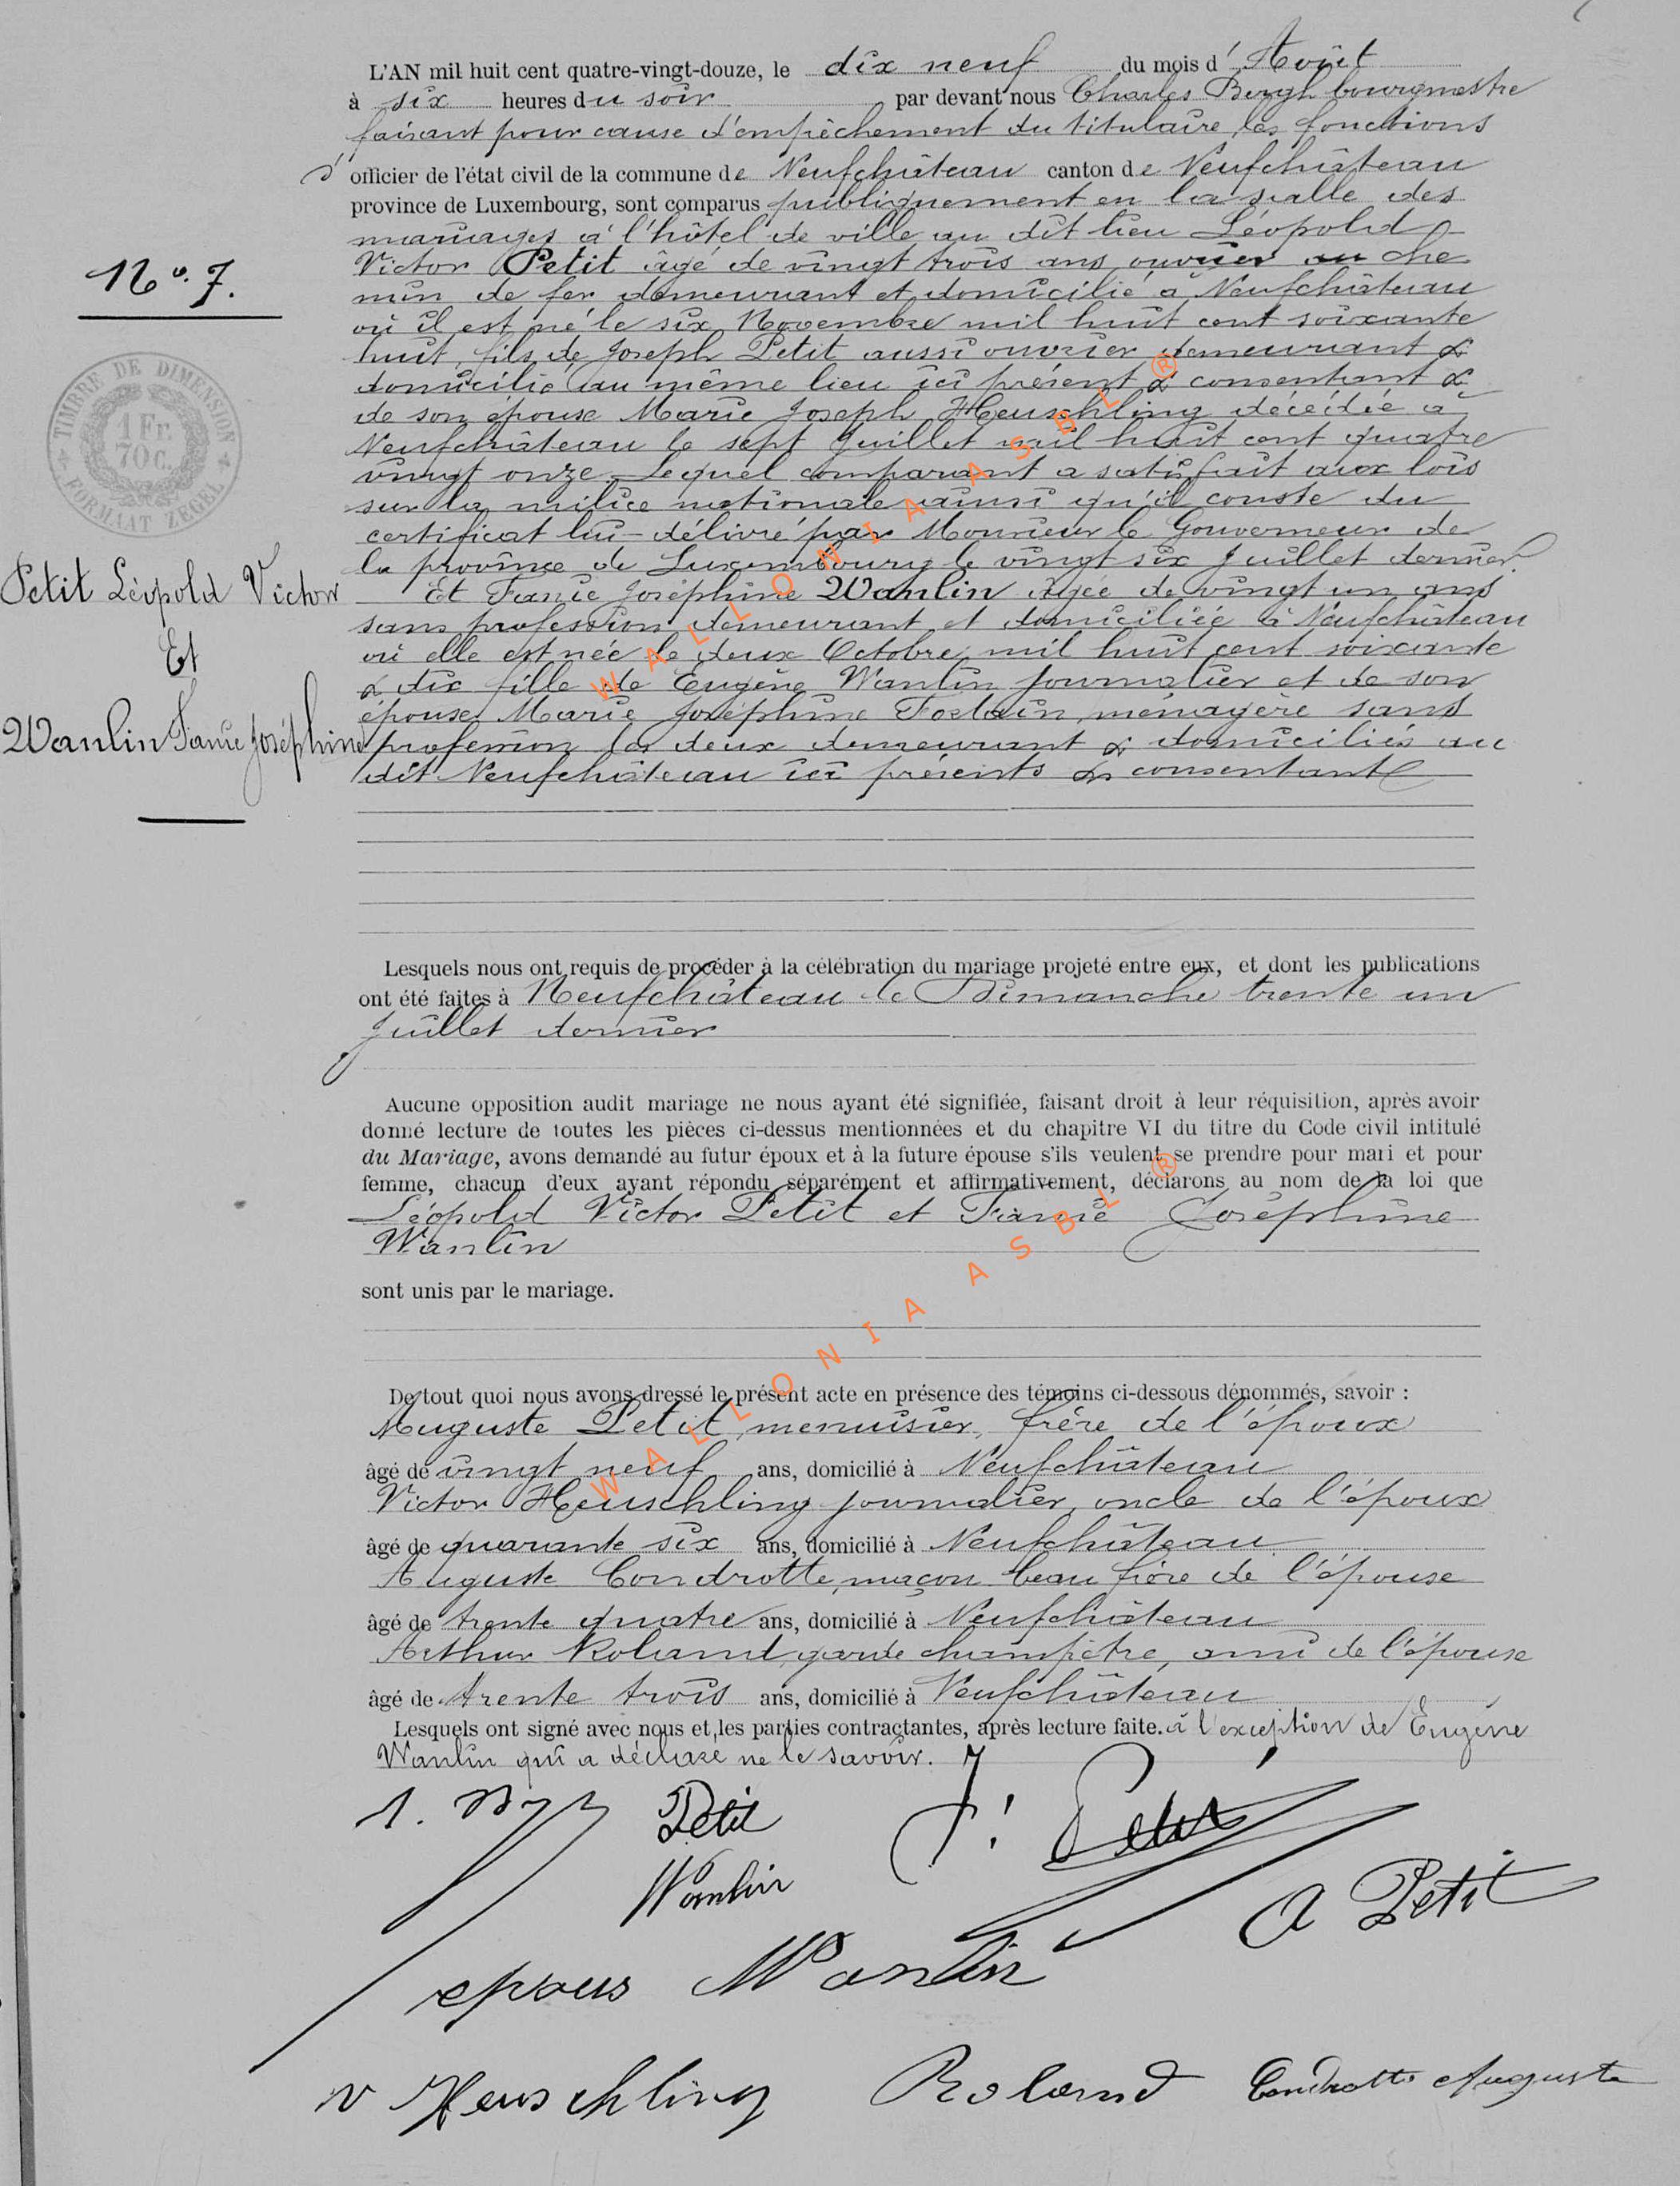 L'AN mil huit cent quatre-vingt-douze, le dix neuf du mois d'Août
à six heures du soir par devant nous Charles Bergh bourgmestre
faisant pour cause d'empêchement du titulaire les fonctions
d'officier de l'état civil de la commune de Neufchâteau canton de Neufchâteau
province de Luxembourg, sont comparus publiquement en la salle des
mariages à l'hôtel de ville au dit lieu Léopold
Victor Petit âgé de vingt trois ans, ouvrier au che
min de fer demeurant et domicilié à Neufchâteau
où il est né le six Novembre mil huit cent soixante
huit, fils de Joseph Petit aussi ouvrier demeurant &
domicilié au même lieu ici présent & consentant &
de son épouse Marie Joseph Heuschling décédée à
Neufchâteau le sept Juillet mil huit cent quatre
vingt onze. Lequel comparant a satisfait aux lois
sur la milice nationale ainsi qu'il conste du
certificat lui délivré par Monsieur le Gouverneur de
la province de Luxembourg le vingt six Juillet dernier.
Et Fanie Joséphine Wanlin âgée de vingt un ans
sans profession demeurant et domiciliée à Neufchâteau
où elle est née le deux Octobre mil huit cent soixante
& dix fille de Eugène Wanlin journalier et de son
épouse Marie Joséphine ménagère sans
profession les deux demeurant & domiciliés au
dit Neufchâteau ici présents & consentant
No. 7.
TIMBRE DE DIMENSION
1 Fr.
70 c.
FORMAAT ZEGEL
Petit Léopold Victor
Et
Wanlin Fanie Joséphine
Lesquels nous ont requis de procéder à la célébration du mariage projeté entre eux, et dont les publications
ont été faites à Neufchâteau le Dimanche trente un
Juillet dernier
Aucune opposition audit mariage ne nous ayant été signifiée, faisant droit à leur réquisition, après avoir
donné lecture de toutes les pièces ci-dessus mentionnées et du chapitre VI du titre du Code civil intitulé
du Mariage, avons demandé au futur époux et à la future épouse s'ils veulent se prendre pour mari et pour
femme, chacun d'eux ayant répondu séparément et affirmativement, déclarons au nom de la loi que
Léopold Victor Petit et Fanie Joséphine
Wanlin
sont unis par le mariage.
De tout quoi nous avons dressé le présent acte en présence des témoins ci-dessous dénommés, savoir :
Auguste Petit, menuisier, frère de l'époux
âgé de vingt neuf ans, domicilié à Neufchâteau
Victor Heuschling journalier, oncle de l'époux
âgé de quarante six ans, domicilié à Neufchâteau
Auguste Condrotte, maçon beau frère de l'épouse
âgé de trente quatre ans, domicilié à Neufchâteau
Arthur Roland, garde champêtre, ami de l'épouse
âgé de trente trois ans, domicilié à Neufchâteau
Lesquels ont signé avec nous et les parties contractantes, après lecture faite. à l'exception de Eugène
Wanlin qui a déclaré ne le savoir.
Petit
J. Petit
Wanlin
A Petit
epous Wanlin
V Heuschling
Roland
Condrotte Auguste
WALLONIA ASBL ®
WALLONIA ASBL ®